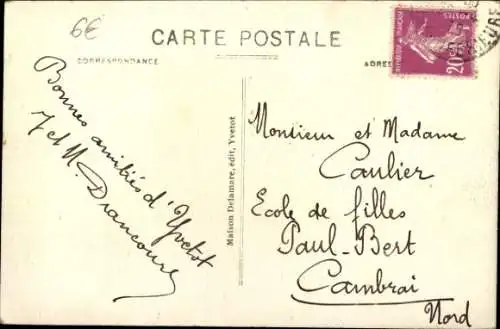 6€
CARTE POSTALE
CORRESPONDANCE
Bonnes amitiés d'Yvetot
J et M. Drancourt
Maison Delamare, édit, Yvetot
REPUBLIQUE FRANÇAISE
POSTES
20c
Monsieur et Madame
Caulier
Ecole de filles
Paul-Bert
Cambrai
Nord